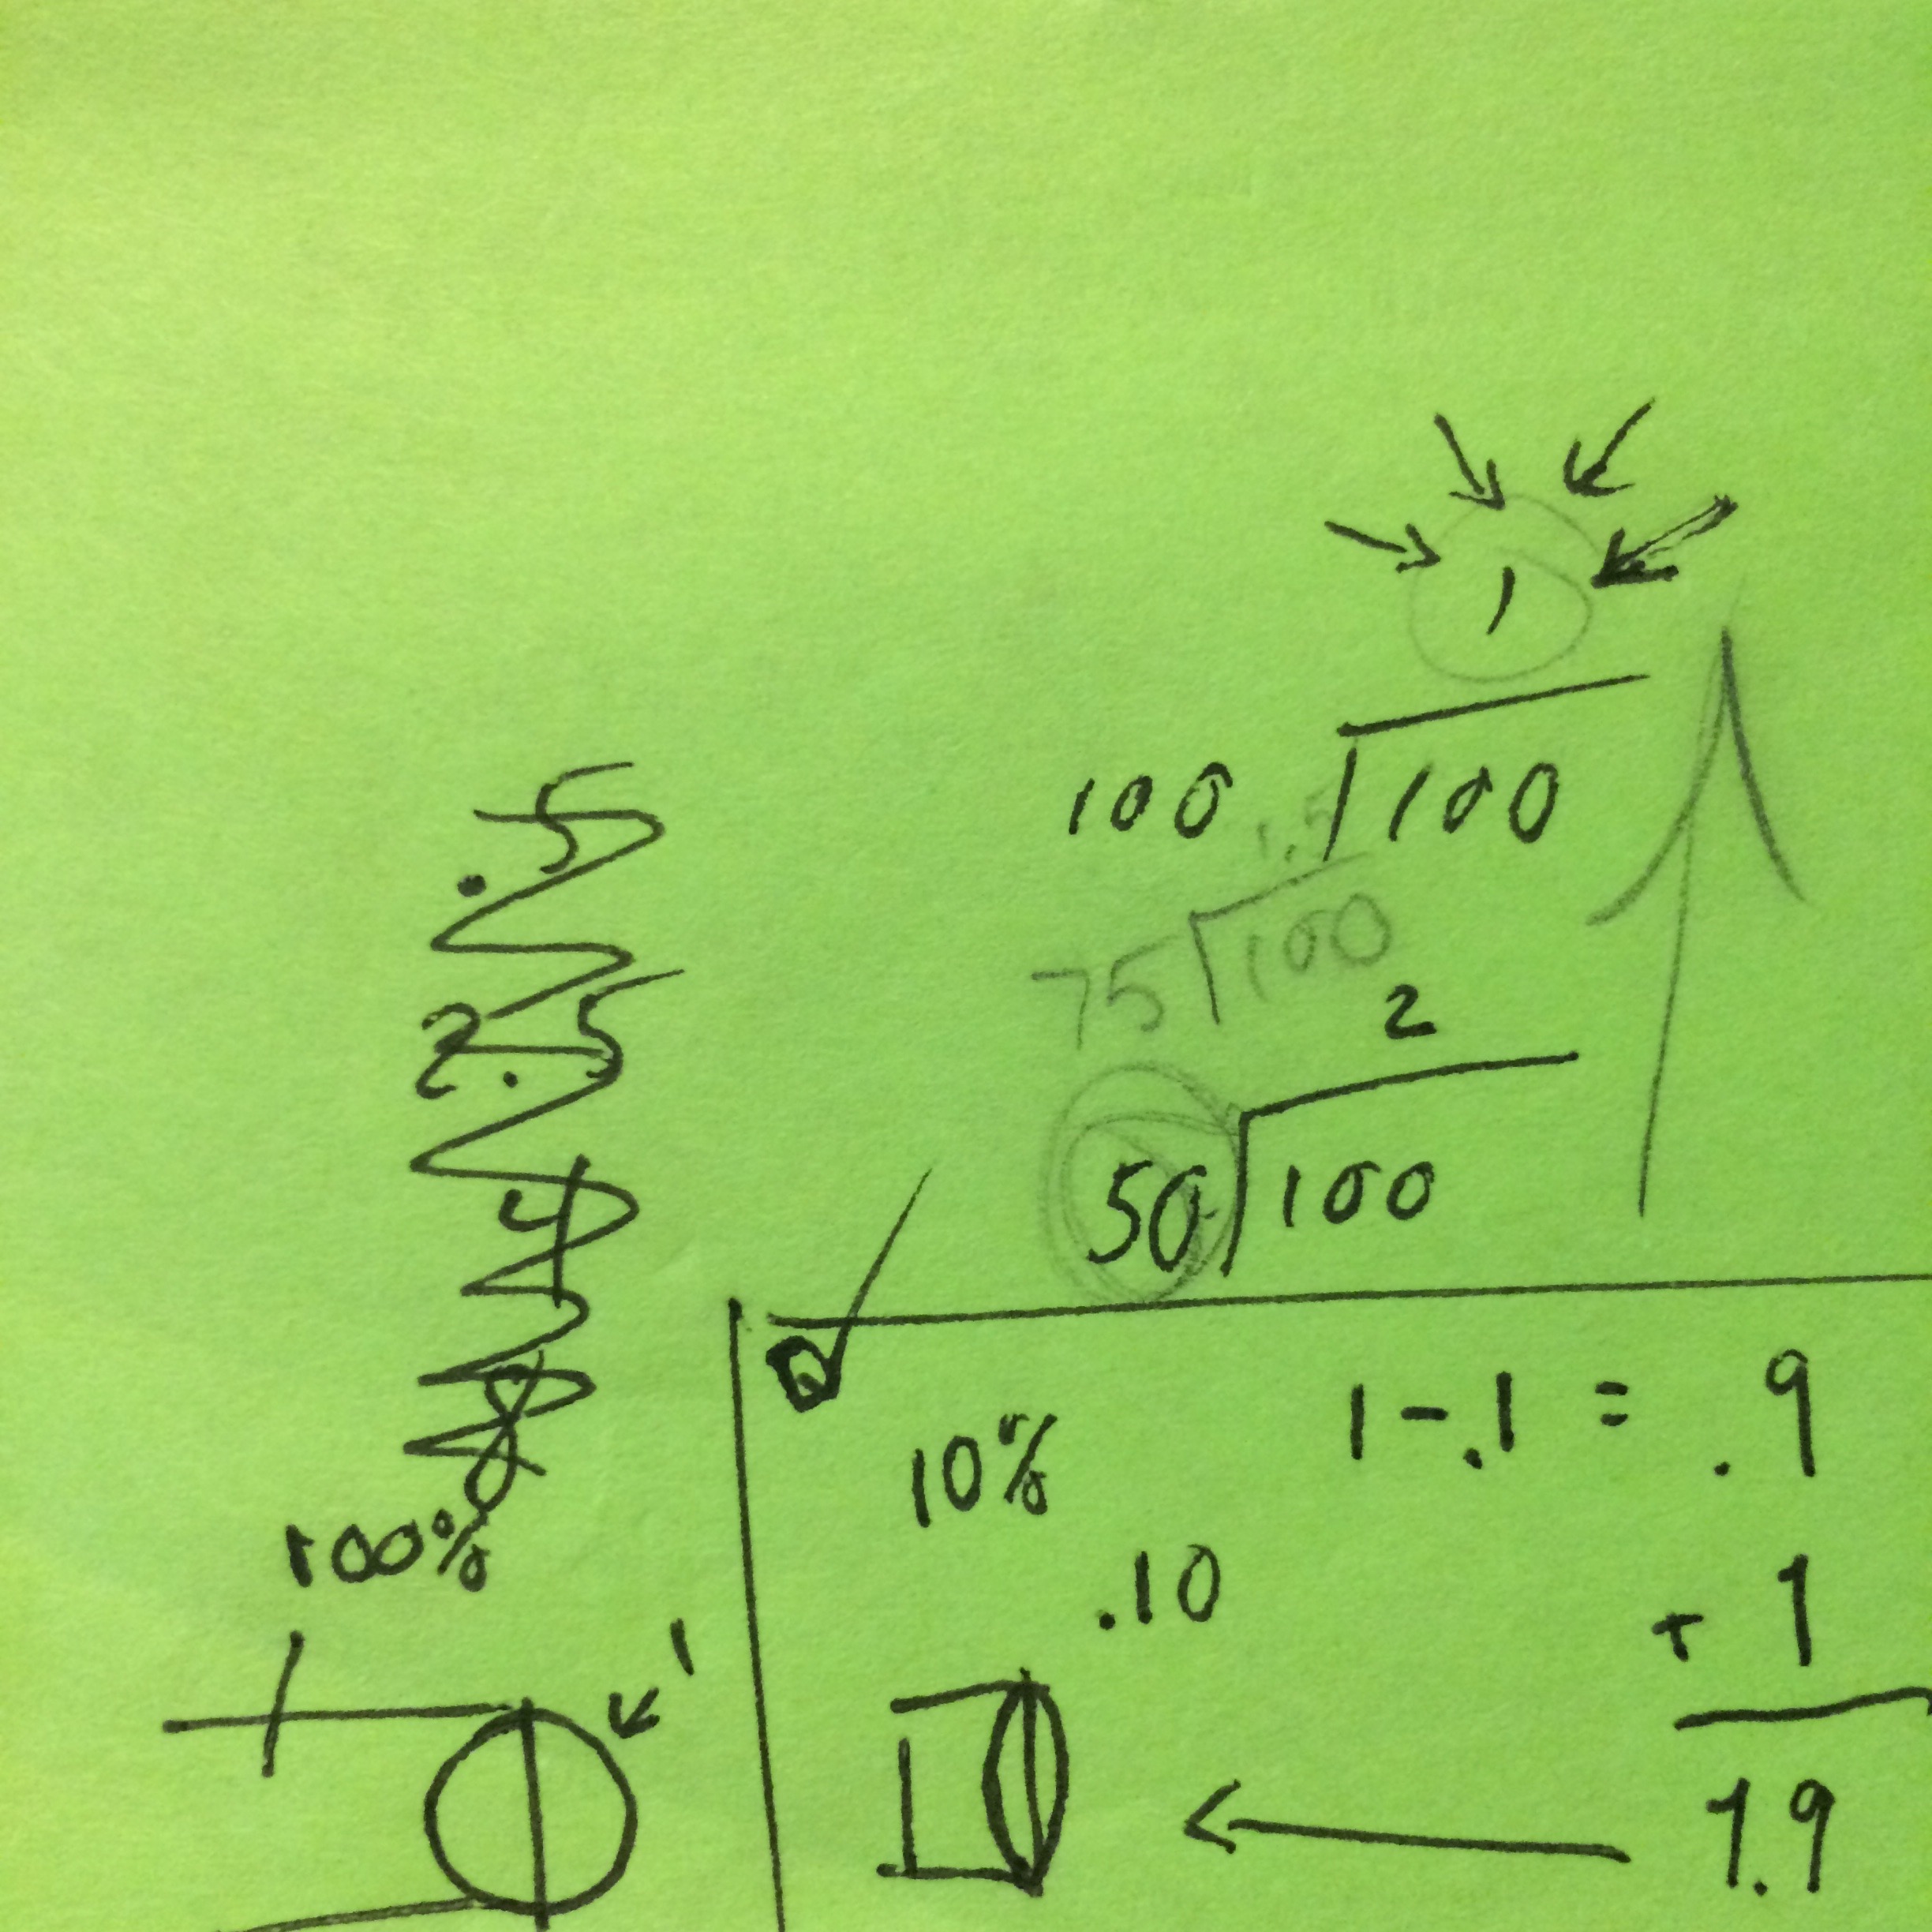 1
100 100
1.5
75 100
2
50 100
.5
2.5
4
8
100%
1
10%
.10
1 - .1 = .9
+ 1
1.9